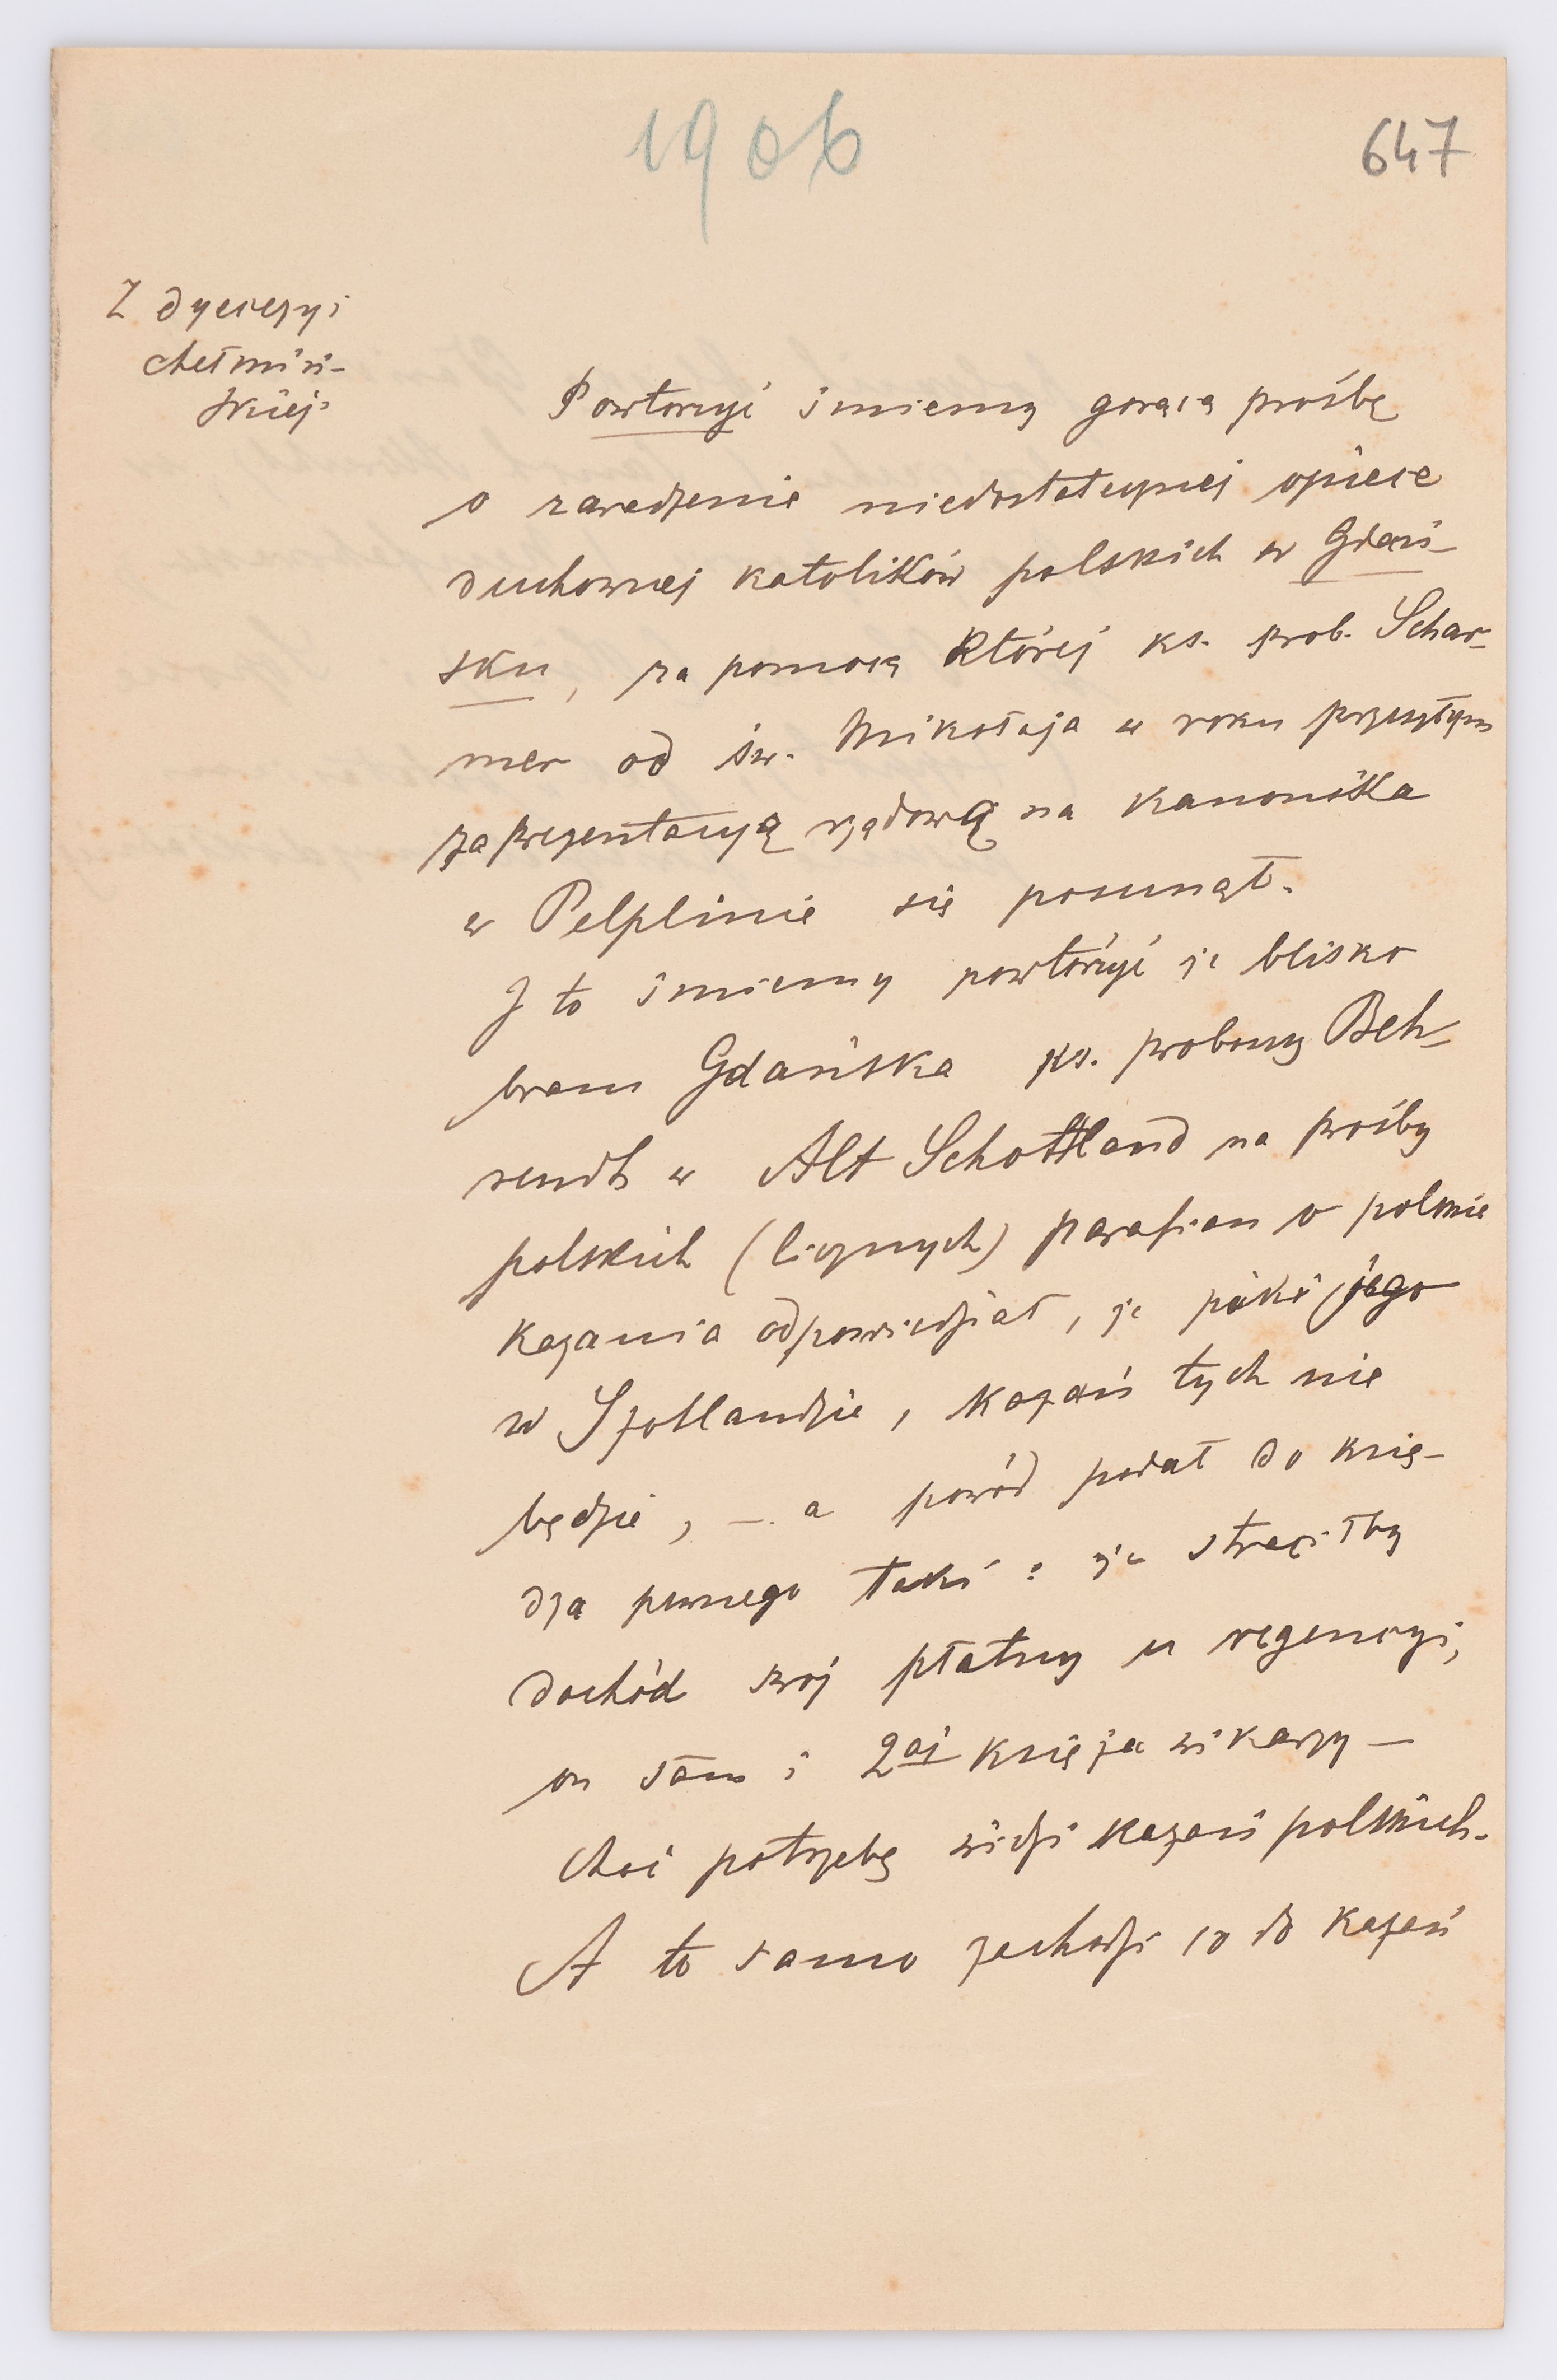 1906
647
Z dyecezyi
chełmiń-
skiej.
Powtorzyć śmiemy gorącą prośbę
o zaradzenie niedostatecznej opiece
duchownej katolików polskich w Gdań-
sku, za pomocą której ks. prob. Schar-
mer od św. Mikołaja w roku przeszłym
za prezentacyą rządową na kanonika
w Pelplinie się posunął.
I to śmiemy powtórzyć że blisko
bram Gdańska ks. proboszcz Beh-
rendt w Alt Schottland na prośby
polskich (licznych) parafian o polskie
kazania odpowiedział, że póki jego
w Szotlandzie, kazań tych nie
będzie, — a powód podał do księ-
dza pewnego taki: że straciłby
dochód swój płatny u regencyi,
on sam i 2aj księża wikarzy —
choć potrzebę widzi kazań polskich.
A to samo zachodzi co do kazań